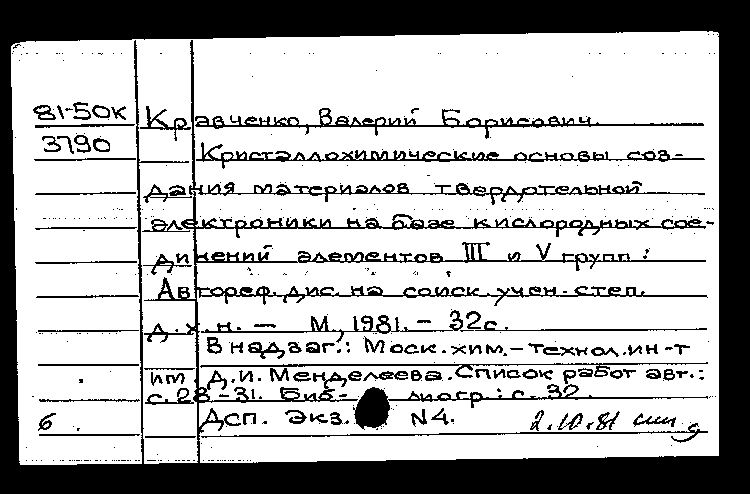 81-50К Кравченко, Валерий Борисович.
3790 Кристаллохимические основы соз-
дания материалов твердотельной
электроники на базе кислородных сое-
динений элементов III и V групп:
Автореф. дис. на соиск. учен. степ.
д.х.н. — М., 1981. - 32с.
В надзаг.: Моск. хим.-технол. ин-т
им. Д.И. Менделеева. Список работ авт.:
с. 28-31. Биб- лиогр.: с. 32.
6. Дсп. Экз. N4. 2.10.81